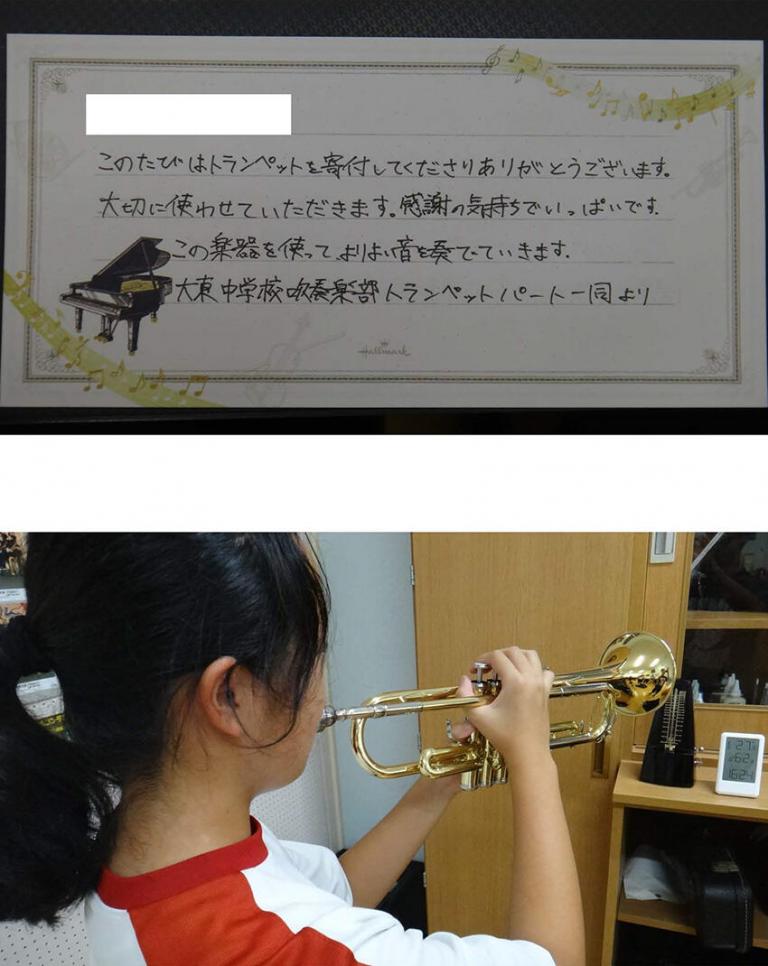 このたびはトランペットを寄付してくださりありがとうございます。
大切に使わせていただきます。感謝の気持ちでいっぱいです。
この楽器を使ってよりよい音を奏でていきます.
大東中学校吹奏楽部トランペットパート一同より
Hallmark
27
62
1624